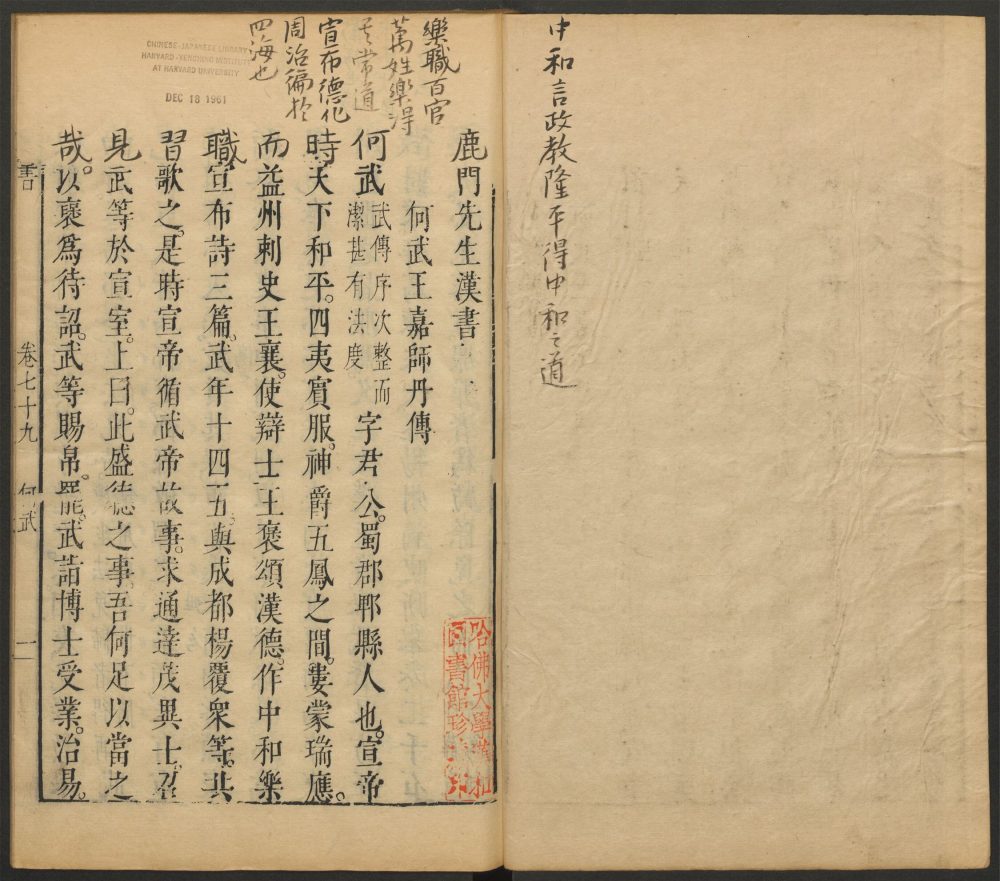 中和言政教隆平得中和之道
樂職百官
萬姓樂得
其常道
宣布德化
周洽徧於
四海也
CHINESE-JAPANESE LIBRARY
HARVARD-YENCHING INSTITUTE
AT HARVARD UNIVERSITY
DEC 18 1961
鹿門先生漢書
何武王嘉師丹傳
何武武傳序次整而潔甚有法度字君公。蜀郡郫縣人也。宣帝
時天下和平。四夷賓服。神爵五鳳之間。婁蒙瑞應。
而益州刺史王襄。使辯士王褒頌漢德。作中和樂
職宣布詩三篇。武年十四五。與成都楊覆衆等。共
習歌之。是時宣帝循武帝故事。求通達茂異士。召
見武等於宣室。上曰。此盛德之事。吾何足以當之
哉。以襃爲待詔。武等賜帛。罷。武詣博士受業。治易。
書
卷七十九
何武
一
哈佛大學漢和
圖書館珍藏印